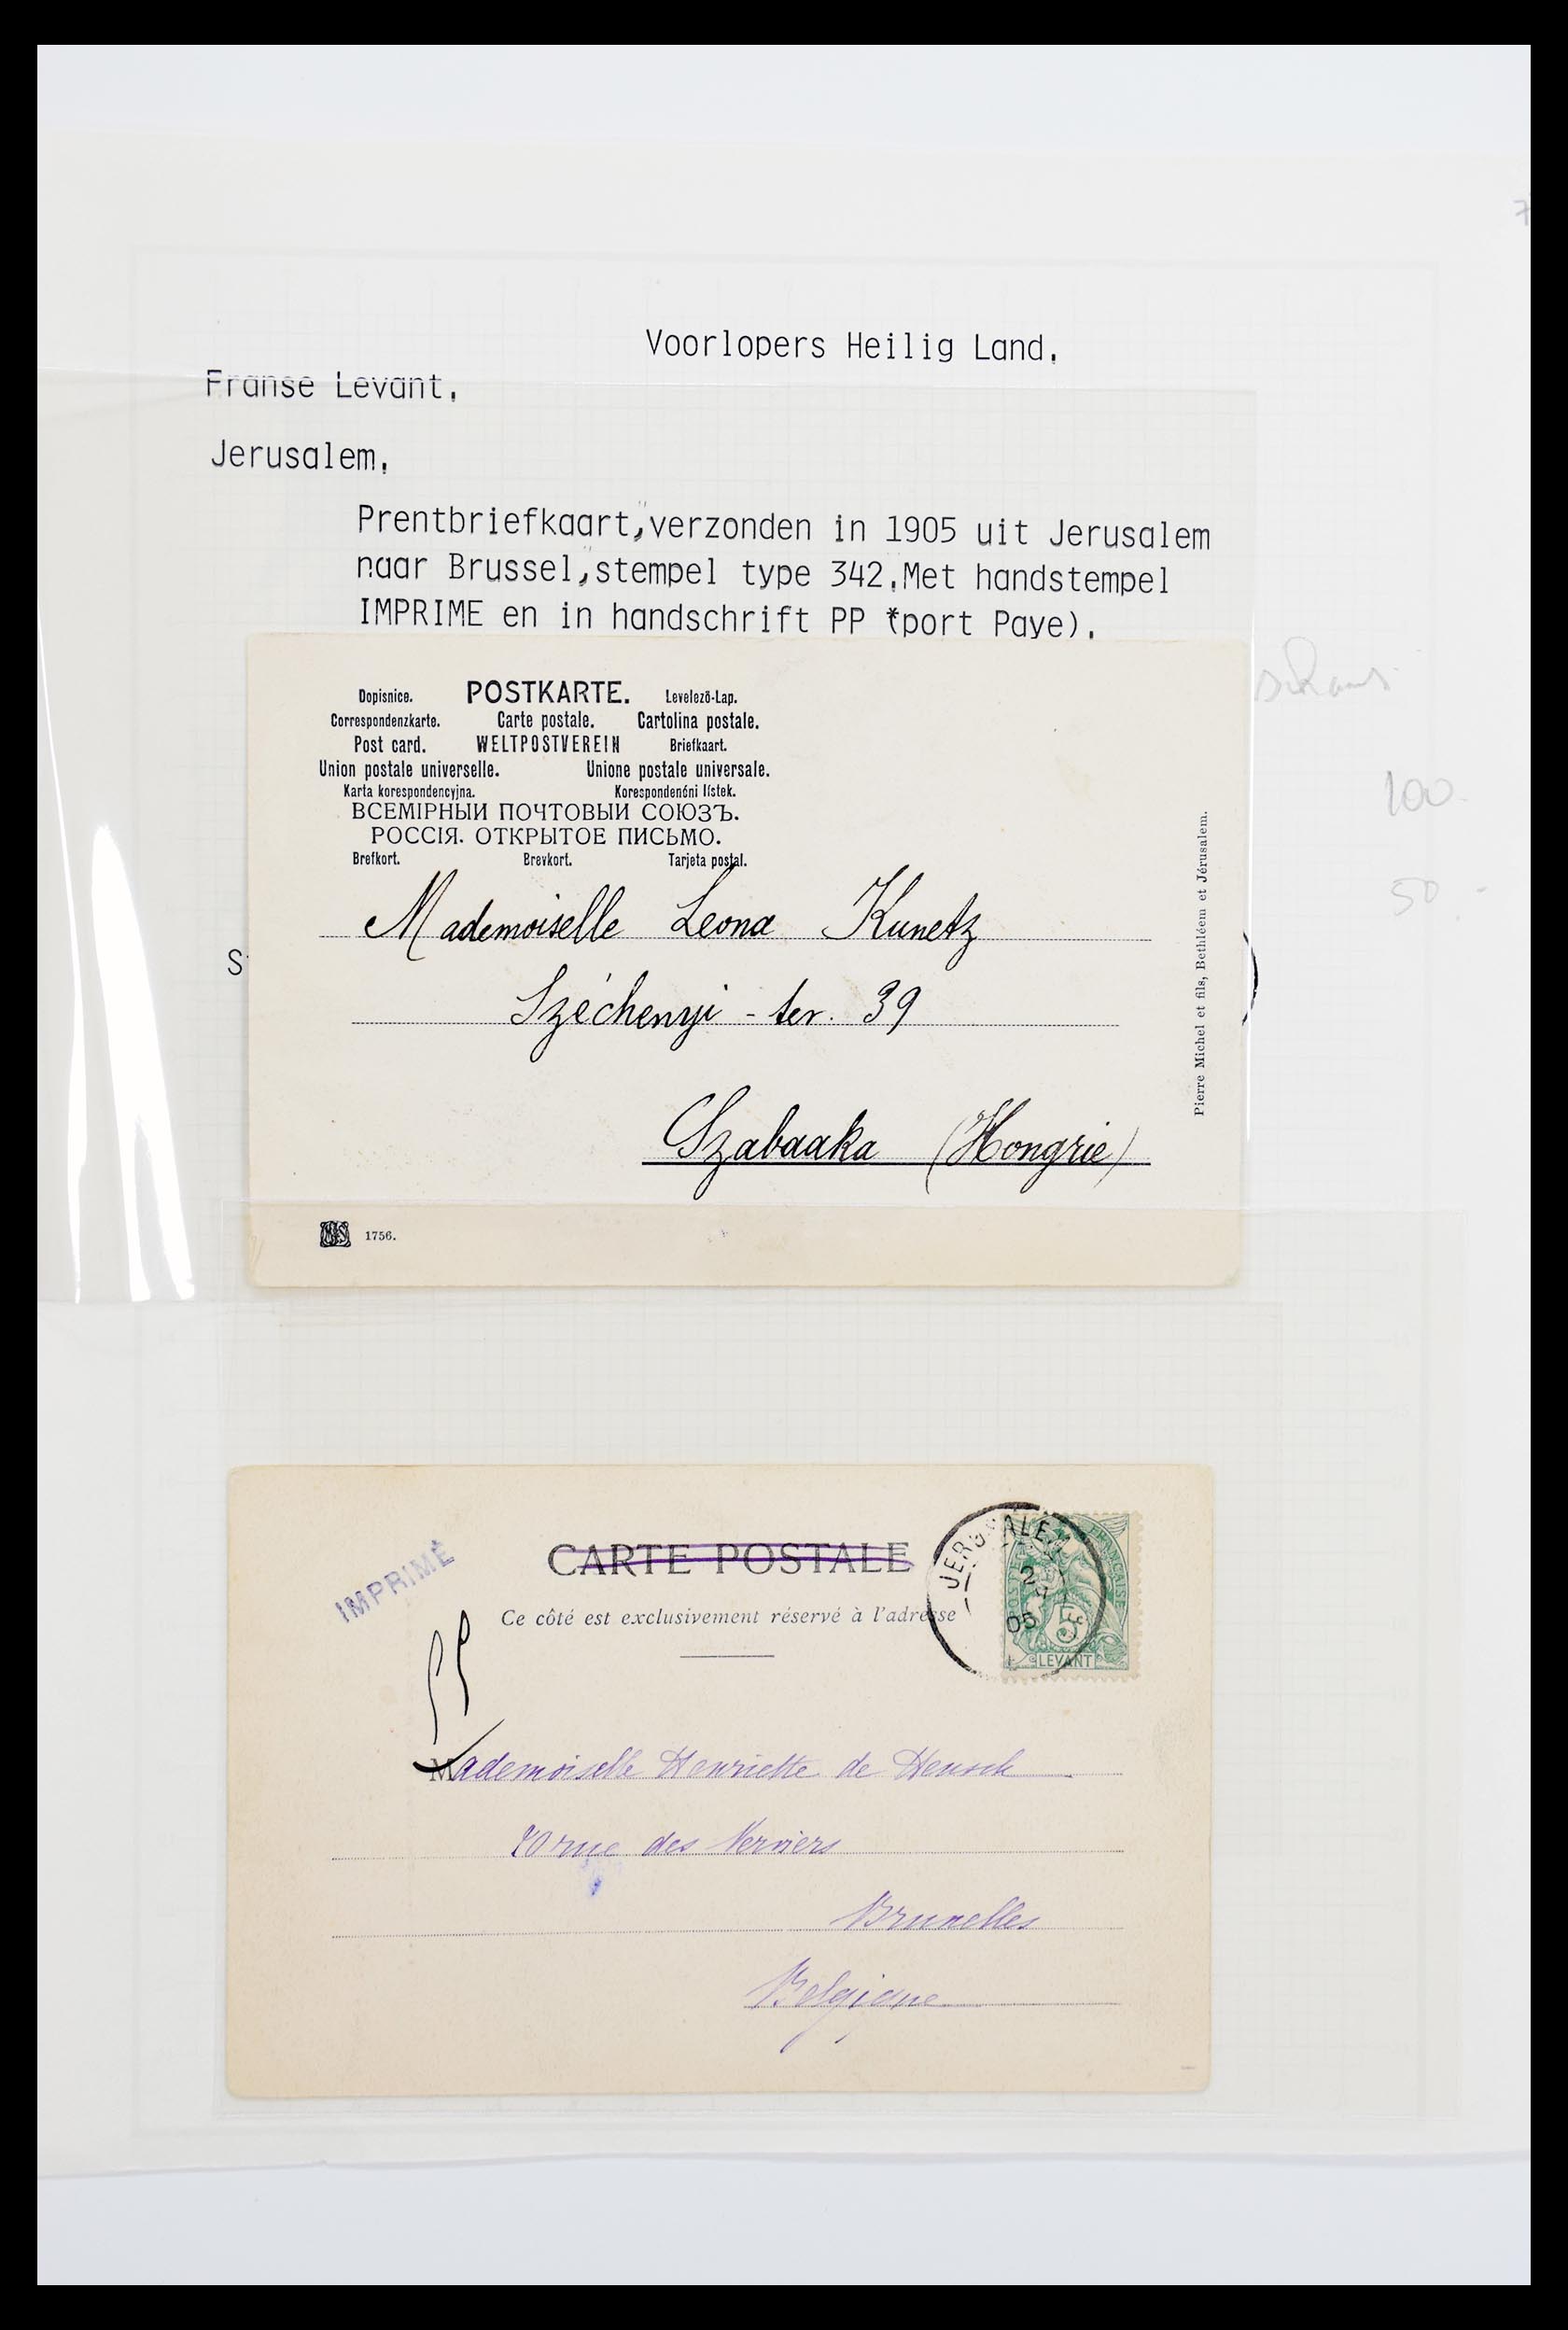 Voorlopers Heilig Land.
Franse Levant.
Jerusalem.
Prentbriefkaart,"verzonden in 1905 uit Jerusalem
naar Brussel,"stempel type 342.Met handstempel
IMPRIME en in handschrift PP *port Paye).
Dopisnice. POSTKARTE. Levelező-Lap.
Correspondenzkarte. Carte postale. Cartolina postale.
Post card. WELTPOSTVEREIN Briefkaart.
Union postale universelle. Unione postale universale.
Karta korespondencyjna. Korespondenční lístek.
ВСЕМІРНЫИ ПОЧТОВЫИ СОЮЗЪ.
РОССІЯ. ОТКРЫТОЕ ПИСЬМО.
Brefkort. Brevkort. Tarjeta postal.
Mademoiselle Leona Kunetz
Széchenyi - ter. 39
Szabaaka (Hongrie)
Pierre Michel et fils, Bethléem et Jérusalem.
1756.
S
100.-
50.-
IMPRIMÉ
CARTE POSTALE
Ce côté est exclusivement réservé à l'adresse
JERUSALEM
2
05
POSTE FRANÇAISE
5c
LEVANT
PP
Mademoiselle Henriette de Heusch
70 rue des Verviers
Bruxelles
Belgique